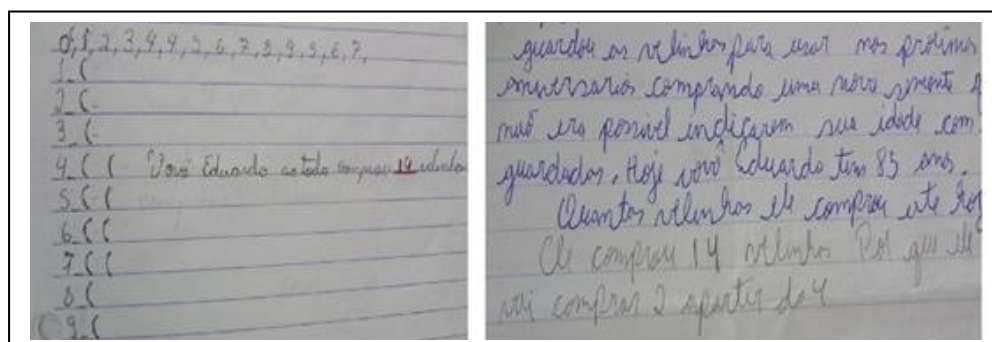 0,1,2,3,4,4,5,6,7,8,9,5,6,7,
1_(
2_(
3_(
4_( ( Vovô Eduardo ao todo comprou 14 velinhas
5_( (
6_( (
7_( (
8_(
9_(
guardou as velinhas para usar nos próximos
aniversários comprando uma nova somente
não era possível indicarem sua idade com
guardadas. Hoje vovô Eduardo tem 85 anos.
Quantas velinhas ele comprou até
Ele comprou 14 velinhas Por que ele
vai comprar 2 apartir do 4